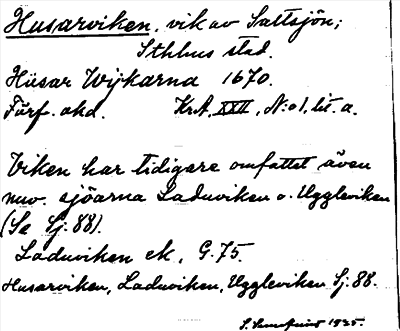 Husarviken, vik av Saltsjön;
Sthlms stad.
Hüsar Wijkarna 1670.
Förf. okd. Kr.A. XXII, N:o 1, lit. a.
Viken har tidigare omfattat även
nuv. sjöarna Laduviken o. Uggleviken
(Se Sj. 88).
Laduviken ek, G. 75.
Husarviken, Laduviken, Uggleviken Sj. 88.
1935.